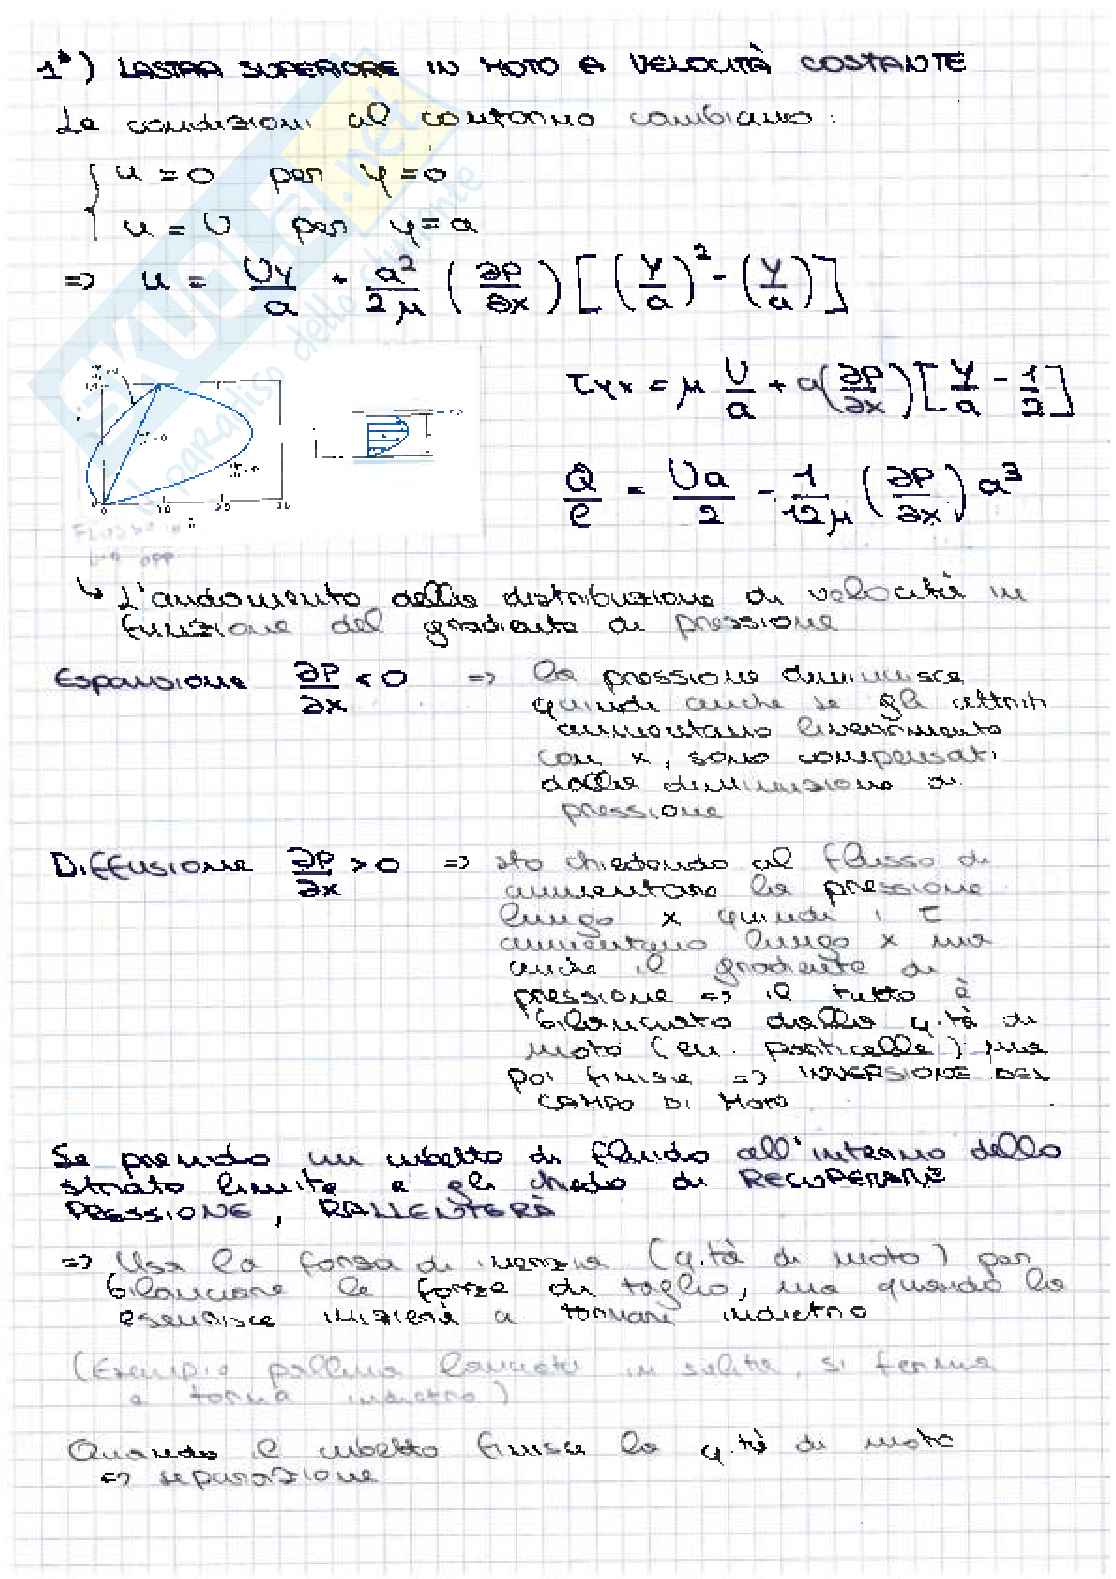 1°) LASTRA SUPERIORE IN MOTO A VELOCITÀ COSTANTE
Le condizioni al contorno cambiano:
{ u = 0 per y = 0
u = U per y = a
=> u = Uy/a + a²/2μ (∂P/∂x) [(y/a)² - (y/a)]
τyx = μ U/a + a(∂P/∂x)[y/a - 1/2]
Q/l = Ua/2 - 1/12μ (∂P/∂x) a³
↳ L'andamento della distribuzione di velocità in
funzione del gradiente di pressione
Espansione ∂P/∂x < 0 => la pressione diminuisce
quindi anche se gli attriti
aumentano linearmente
con x, sono compensati
dalla diminuzione di
pressione
Diffusione ∂P/∂x > 0 => sto chiedendo al flusso di
aumentare la pressione
lungo x quindi i τ
aumentano lungo x ma
anche il gradiente di
pressione => il tutto è
bilanciato dalla q.tà di
moto (en. particelle) ma
poi finisce => INVERSIONE DEL
CAMPO DI MOTO
Se prendo un cubetto di fluido all'interno dello
strato limite e gli chiedo di RECUPERARE
PRESSIONE, RALLENTERÀ
=> Usa la forza di inerzia (q.tà di moto) per
bilanciare le forze di taglio, ma quando la
esaurisce inizierà a tornare indietro
(Esempio pallina lanciata in salita, si ferma
e torna indietro)
Quando il cubetto finisce la q.tà di moto
=> separazione
SKUOLA.net
il paradiso dello studente